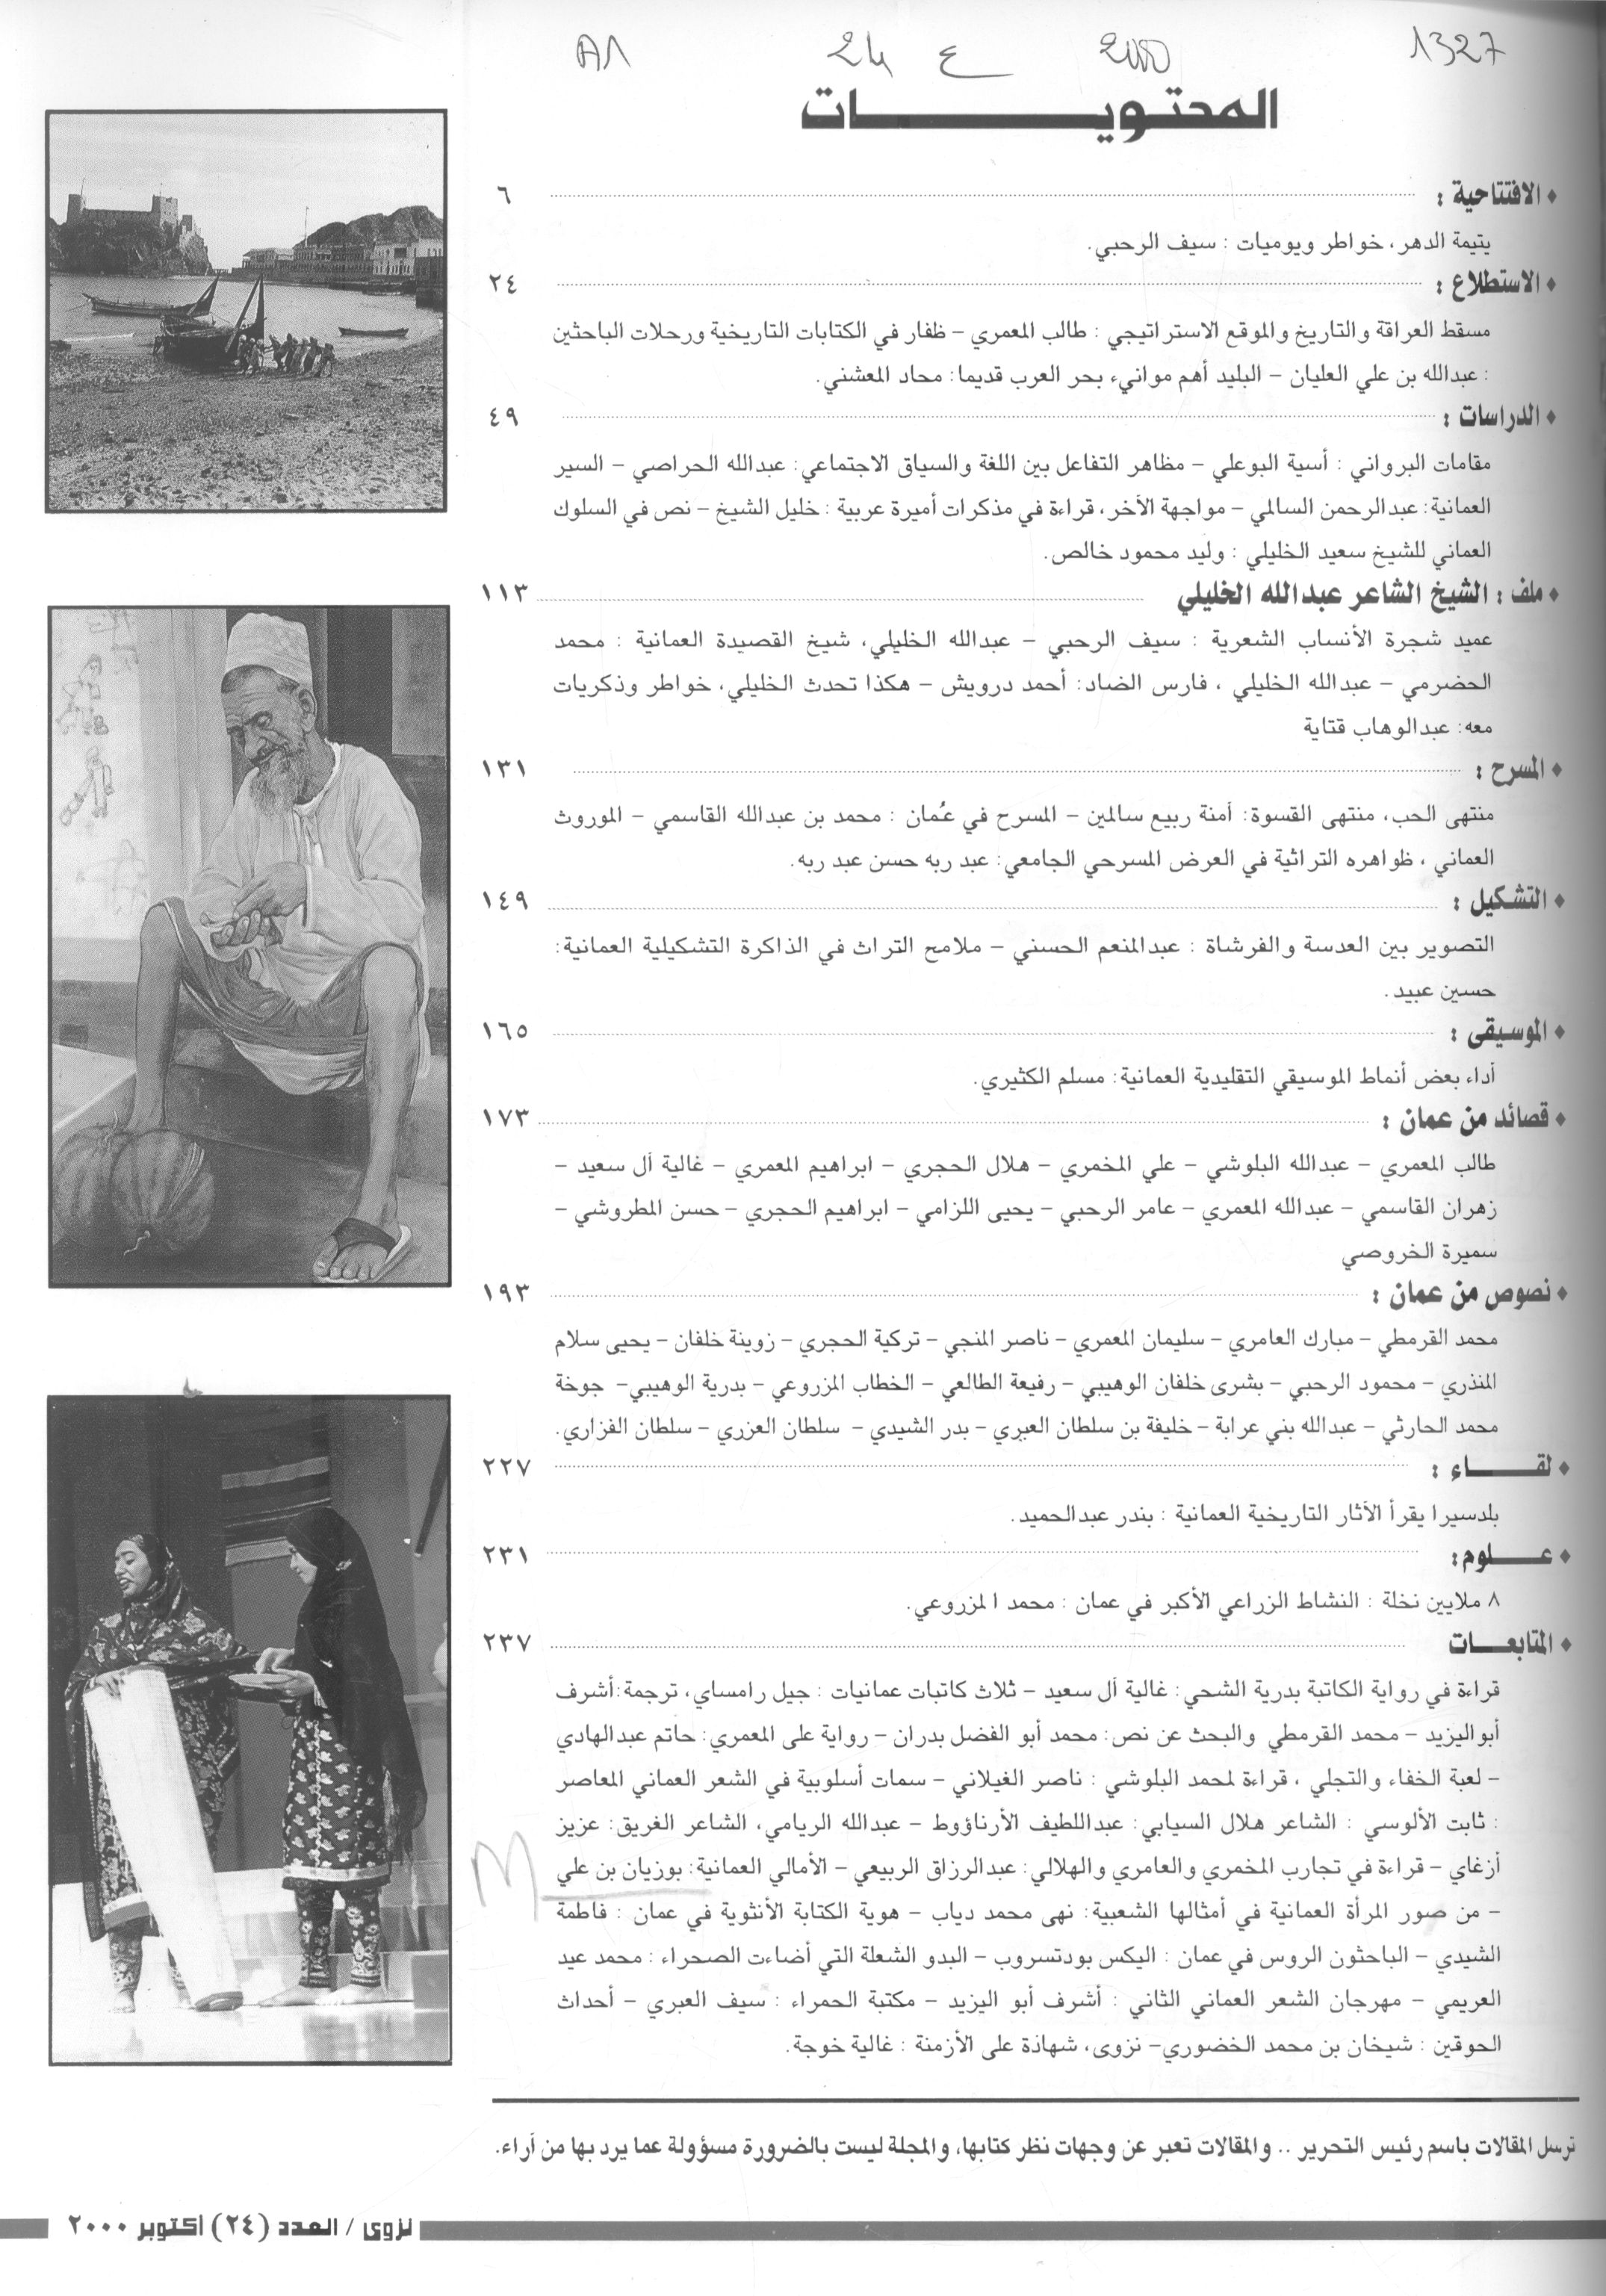 1327 2000 ع 24 A1
المحتويـــات
♦ الافتتاحية : ٦
يتيمة الدهر، خواطر ويوميات : سيف الرحبي.
♦ الاستطلاع : ٢٤
مسقط العراقة والتاريخ والموقع الاستراتيجي : طالب المعمري – ظفار في الكتابات التاريخية ورحلات الباحثين
: عبدالله بن علي العليان – البليد أهم موانيء بحر العرب قديما: محاد المعشني.
♦ الدراسات : ٤٩
مقامات البرواني : أسية البوعلي – مظاهر التفاعل بين اللغة والسياق الاجتماعي: عبدالله الحراصي – السير
العمانية: عبدالرحمن السالمي – مواجهة الآخر، قراءة في مذكرات أميرة عربية : خليل الشيخ – نص في السلوك
العماني للشيخ سعيد الخليلي : وليد محمود خالص.
♦ ملف : الشيخ الشاعر عبدالله الخليلي ١١٣
عميد شجرة الأنساب الشعرية : سيف الرحبي – عبدالله الخليلي، شيخ القصيدة العمانية : محمد
الحضرمي – عبدالله الخليلي ، فارس الضاد: أحمد درويش – هكذا تحدث الخليلي، خواطر وذكريات
معه: عبدالوهاب قتاية
♦ المسرح : ١٣١
منتهى الحب، منتهى القسوة: آمنة ربيع سالمين – المسرح في عُمان : محمد بن عبدالله القاسمي – الموروث
العماني ، ظواهره التراثية في العرض المسرحي الجامعي: عبد ربه حسن عبد ربه.
♦ التشكيل : ١٤٩
التصوير بين العدسة والفرشاة : عبدالمنعم الحسني – ملامح التراث في الذاكرة التشكيلية العمانية:
حسين عبيد.
♦ الموسيقى : ١٦٥
أداء بعض أنماط الموسيقي التقليدية العمانية: مسلم الكثيري.
♦ قصائد من عمان : ١٧٣
طالب المعمري – عبدالله البلوشي – علي المخمري – هلال الحجري – ابراهيم المعمري – غالية آل سعيد –
زهران القاسمي – عبدالله المعمري – عامر الرحبي – يحيى اللزامي – ابراهيم الحجري – حسن المطروشي –
سميرة الخروصي
♦ نصوص من عمان : ١٩٣
محمد القرمطي – مبارك العامري – سليمان المعمري – ناصر المنجي – تركية الحجري – زوينة خلفان – يحيى سلام
المنذري – محمود الرحبي – بشرى خلفان الوهيبي – رفيعة الطالعي – الخطاب المزروعي – بدرية الوهيبي– جوخة
محمد الحارثي – عبدالله بني عرابة – خليفة بن سلطان العبري – بدر الشيدي – سلطان العزري – سلطان الفزاري.
♦ لقـــاء : ٢٢٧
بلدسيرا يقرأ الآثار التاريخية العمانية : بندر عبدالحميد.
♦ عـــلوم: ٢٣١
٨ ملايين نخلة : النشاط الزراعي الأكبر في عمان : محمد المزروعي.
♦ المتابعـــات ٢٣٧
قراءة في رواية الكاتبة بدرية الشحي: غالية آل سعيد – ثلاث كاتبات عمانيات : جيل رامساي، ترجمة:أشرف
أبواليزيد – محمد القرمطي والبحث عن نص: محمد أبو الفضل بدران – رواية على المعمري: حاتم عبدالهادي
– لعبة الخفاء والتجلي ، قراءة لمحمد البلوشي : ناصر الغيلاني – سمات أسلوبية في الشعر العماني المعاصر
: ثابت الألوسي : الشاعر هلال السيابي: عبداللطيف الأرناؤوط – عبدالله الريامي، الشاعر الغريق: عزيز
أزغاي – قراءة في تجارب المخمري والعامري والهلالي: عبدالرزاق الربيعي – الأمالي العمانية: بوزيان بن علي
– من صور المرأة العمانية في أمثالها الشعبية: نهى محمد دياب – هوية الكتابة الأنثوية في عمان : فاطمة
الشيدي – الباحثون الروس في عمان : اليكس بودتسروب – البدو الشعلة التي أضاءت الصحراء : محمد عيد
العريمي – مهرجان الشعر العماني الثاني : أشرف أبو اليزيد – مكتبة الحمراء : سيف العبري – أحداث
الحوقين : شيخان بن محمد الخضوري– نزوى، شهادة على الأزمنة : غالية خوجة.
M
ترسل المقالات باسم رئيس التحرير .. والمقالات تعبر عن وجهات نظر كتابها، والمجلة ليست بالضرورة مسؤولة عما يرد بها من آراء.
نزوى / العدد (٢٤) أكتوبر ٢٠٠٠